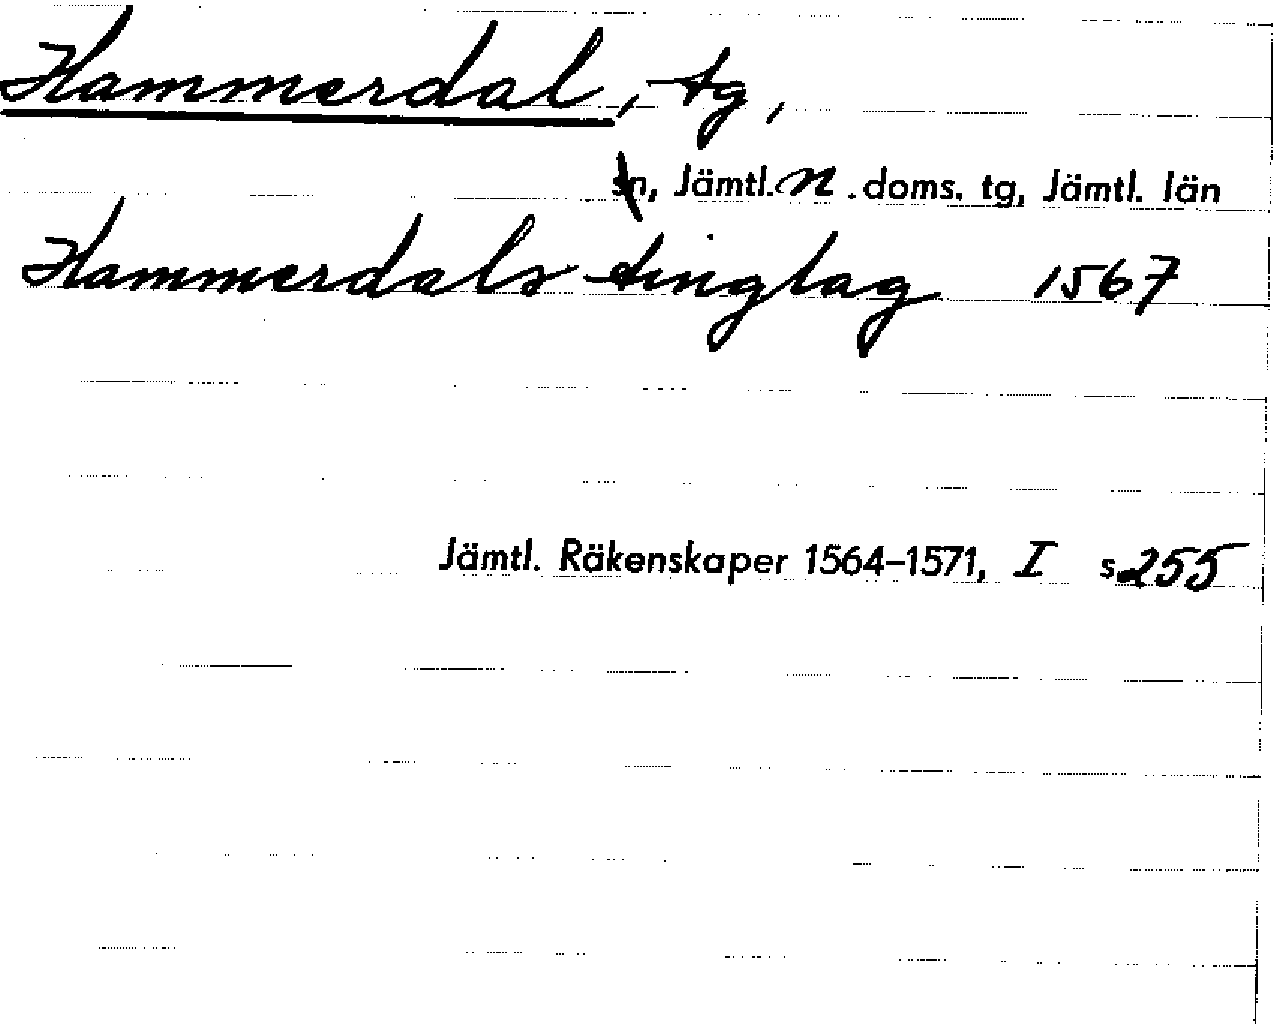 Hammerdal, tg,
sn, Jämtl. n. doms. tg, Jämtl. län
Hammerdals tinglag 1567
Jämtl. Räkenskaper 1564–1571, I s. 255